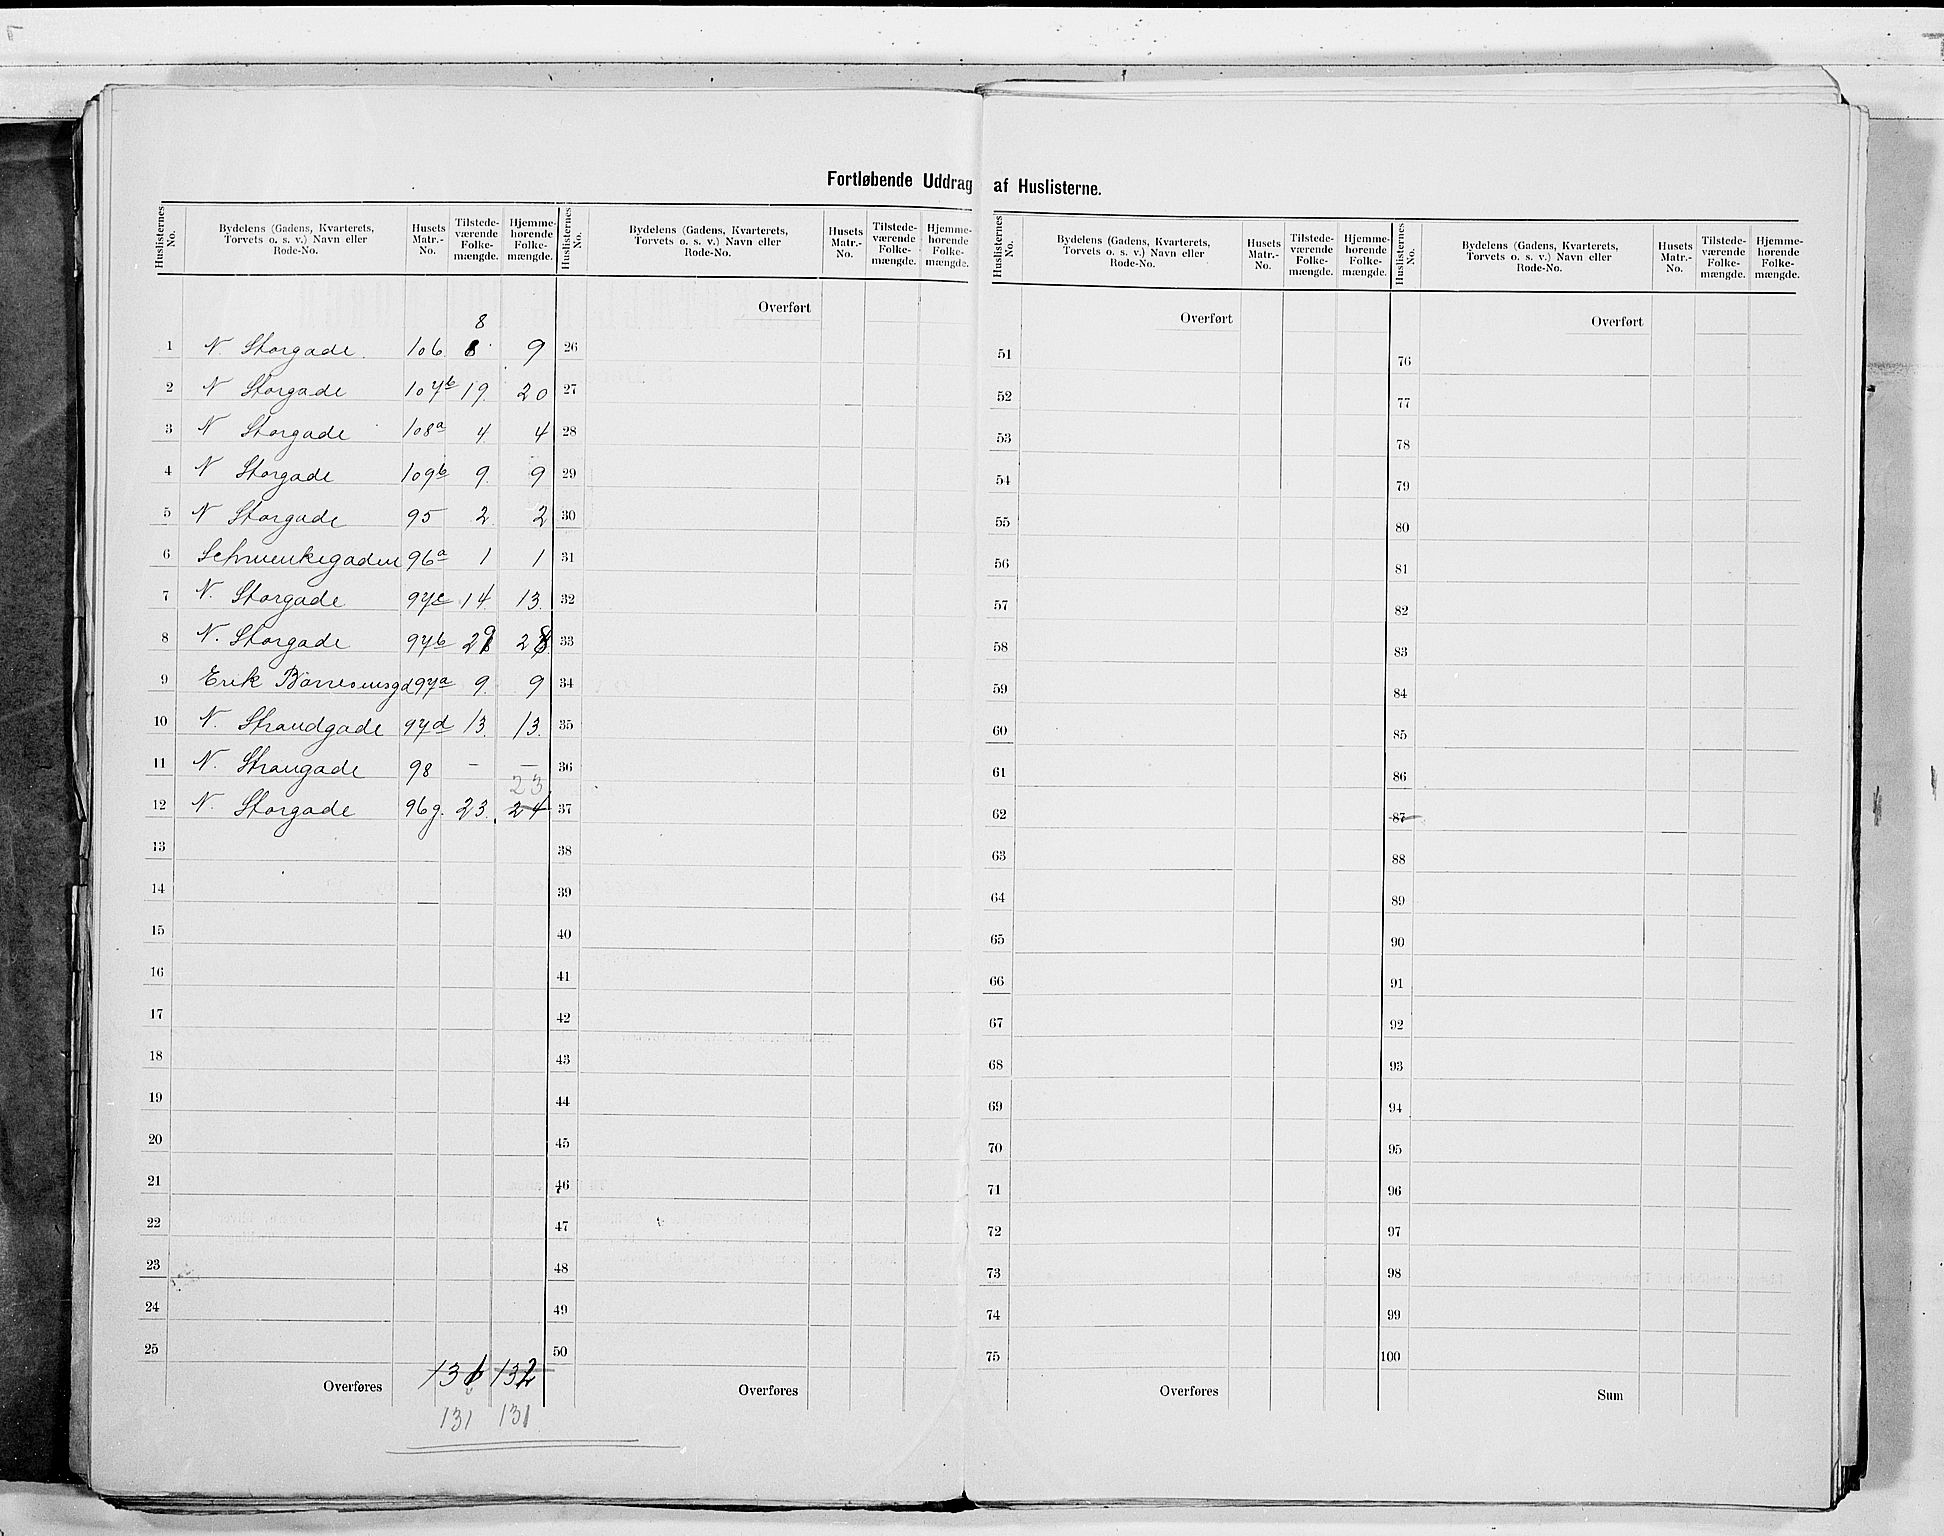 Fortløbende Uddrag af Huslisterne.
Huslisternes No. | Bydelens (Gadens, Kvarterets, Torvets o. s. v.) Navn eller Rode-No. | Husets Matr.-No. | Tilstedeværende Folkemængde. | Hjemmehørende Folkemængde.
Huslisternes No. | Bydelens (Gadens, Kvarterets, Torvets o. s. v.) Navn eller Rode-No. | Husets Matr.-No. | Tilstedeværende Folkemængde. | Hjemmehørende Folkemængde.
Huslisternes No. | Bydelens (Gadens, Kvarterets, Torvets o. s. v.) Navn eller Rode-No. | Husets Matr.-No. | Tilstedeværende Folkemængde. | Hjemmehørende Folkemængde.
Huslisternes No. | Bydelens (Gadens, Kvarterets, Torvets o. s. v.) Navn eller Rode-No. | Husets Matr.-No. | Tilstedeværende Folkemængde. | Hjemmehørende Folkemængde.
Overført Overført Overført
8
1 N. Storgade. 106 8 9 26 51 76
2 N Storgade 107b 19. 20 27 52 77
3 N Storgade 108a 4 4 28 53 78
4 N Storgade 109b 9. 9 29 54 79
5 N Storgade 95 2 2 30 55 80
6 Schwenkegaden 96a 1 1 31 56 81
7 N. Storgade 97c 14. 13. 32 57 82
8 N. Storgade 97b 29 28 33 58 83
9 Erik Börresensgd 97a 9. 9 34 59 84
10 N. Strandgade 97d 13. 13. 35 60 85
11 N. Strangade 98 – – 36 61 86
23
12 N. Storgade 96g. 23. 24 37 62 87
13 38 63 88
14 39 64 89
15 40 65 90
16 41 66 91
17 42 67 92
18 43 68 93
19 44 69 94
20 45 70 95
21 46 71 96
22 47 72 97
23 48 73 98
24 49 74 99
25 50 75 100
Overføres 132 Overføres Overføres Sum
131 131